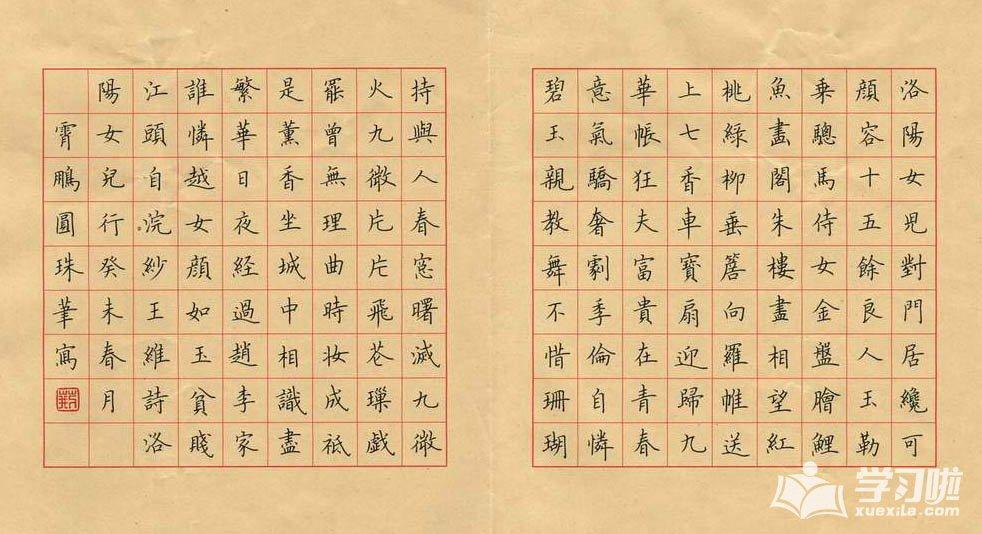 洛陽女兒對門居纔可
顔容十五餘良人玉勒
乗驄馬侍女金盤膾鯉
魚畫閣朱樓盡相望紅
桃綠柳垂簷向羅帷送
上七香車寶扇迎歸九
華帳狂夫富貴在青春
意氣驕奢劇季倫自憐
碧玉親教舞不惜珊瑚
持與人春窓曙滅九微
火九微片片飛花璅戲
罷曾無理曲時妝成祗
是薰香坐城中相識盡
繁華日夜経過趙李家
誰憐越女顔如玉貧賤
江頭自浣紗王維詩洛
陽女兒行癸未春月
霄鵬圓珠筆寫
学习啦
xuexila.com